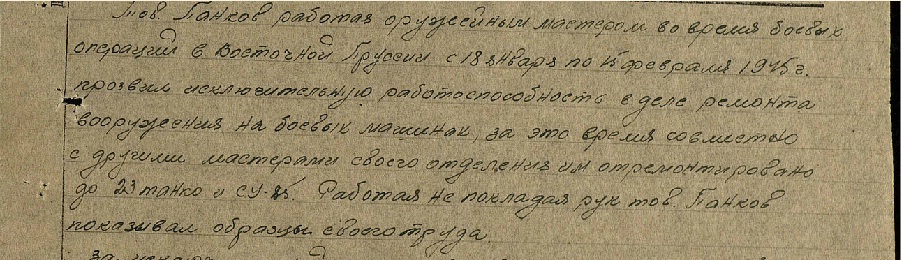 Тов. Панков работая оружейным мастером во время боевых
операций в Восточной Пруссии с 18 января по 15 февраля 1945 г.
проявил исключительную работоспособность в деле ремонта
вооружения на боевых машинах, за это время совместно
с другими мастерами своего отделения им отремонтировано
до 23 танко и СУ-85. Работая не покладая рук тов. Панков
показывал образцы своего труда
за